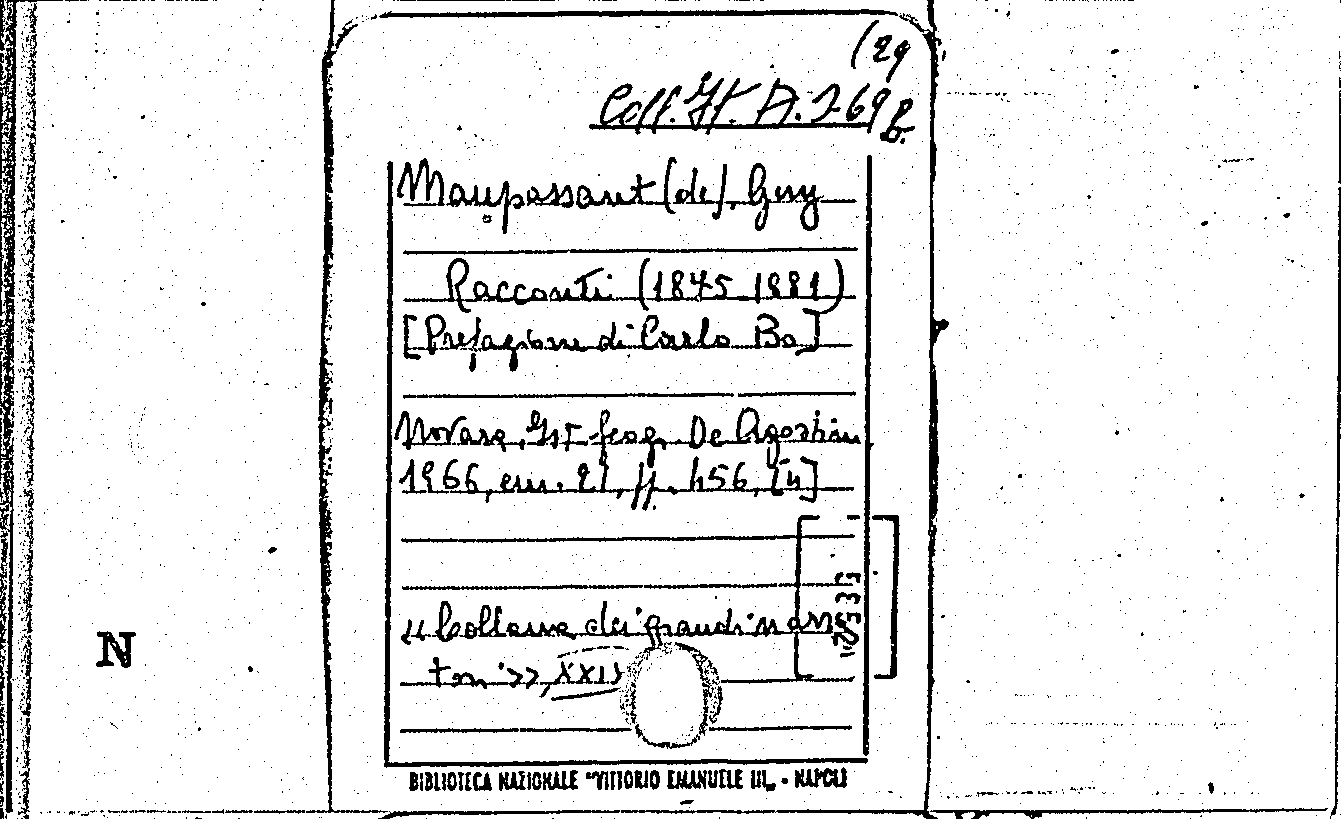 (29
Coll. It. A. 269 b.
Maupassant (de), Guy
Racconti (1875-1881)
[Prefazione di Carlo Bo]
Novara, Ist. geog. De Agostini,
1966, cm. 21, pp. 456, [4]
«Collana dei grandi narra
tori», XXIX
N
BIBLIOTECA NAZIONALE "VITTORIO EMANUELE III„ - NAPOLI